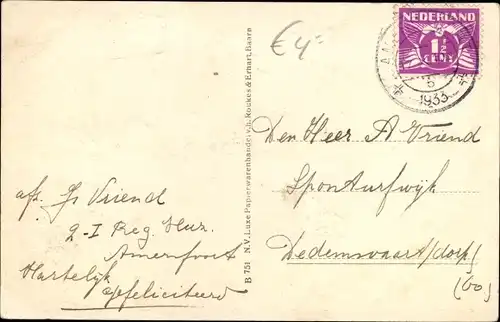 €4=
NEDERLAND
1½
CENT
1933
Den Heer A Vriend
Dedemsvaart/dorp/
(Oo)
afz. Js Vriend
2-I Reg. Huz.
Amersfoort
Hartelijk
gefeliciteerd
B 751 N.V. Luxe Papierwarenhandel v.h. Roukes & Erhart, Baarn